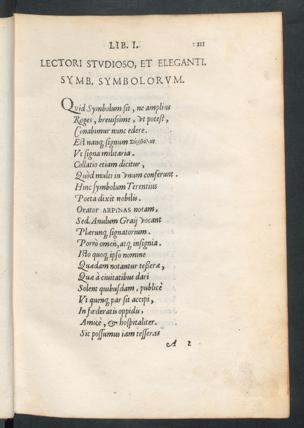 LIB. I. III
LECTORI STVDIOSO, ET ELEGANTI.
SYMB. SYMBOLORVM.
Quid Symbolum sit, ne amplius
Roges, breuissime, vt potest,
Conabimur nunc edere.
Est nanq; signum
Vt signa militaria.
Collatio etiam dicitur,
Quòd multi in vnum conferunt.
Hinc symbolum Terentius
Poeta dixit nobilis.
Orator ARPINAS notam,
Sed Anulum Graij vocant
Plærunq; signatorium.
Porrò omen, atq; insignia.
Isto quoq; ipso nomine
Quædam notantur tesseræ,
Quæ à ciuitatibus dari
Solent quibusdam, publicè
Vt quenq; par sit accipi,
In fœderatis oppidis,
Amicè, & hospitaliter.
Sic possumus iam tesseras
A 2